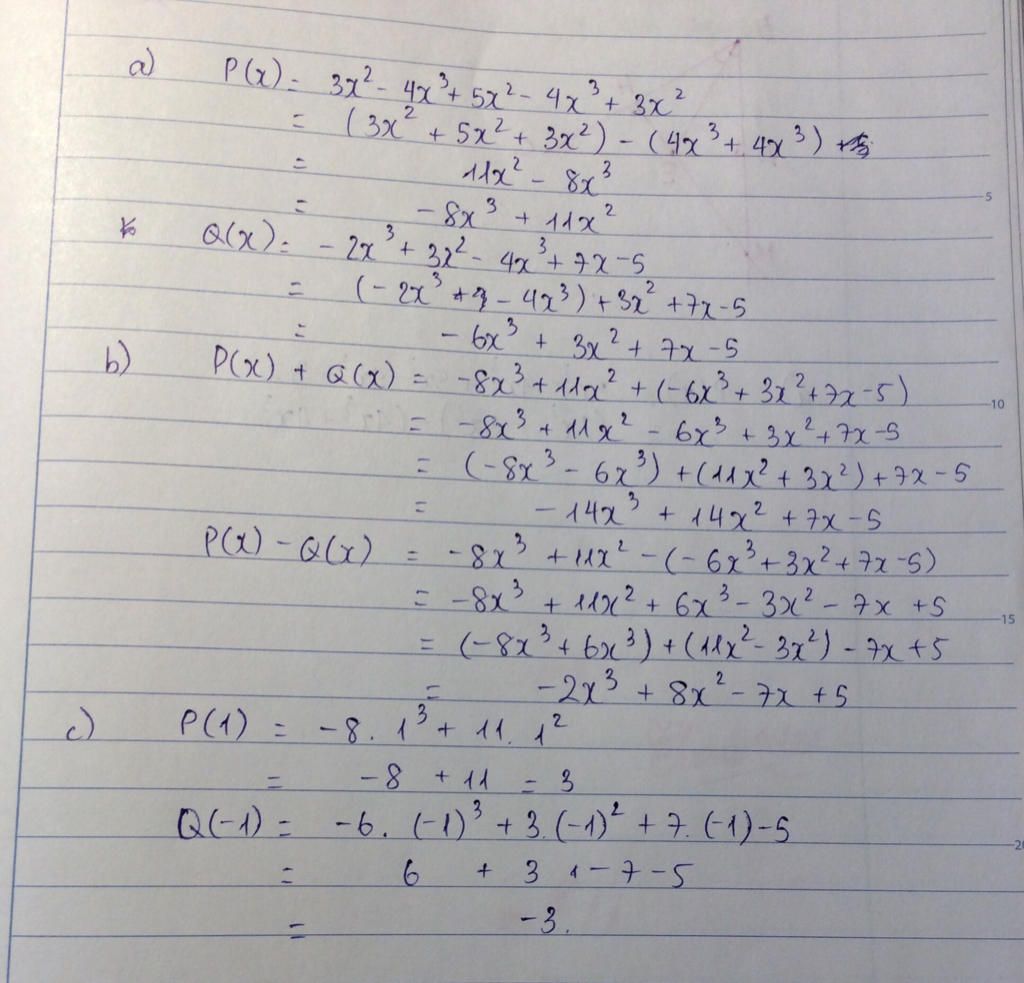 a) P(x) = 3x² - 4x³ + 5x² - 4x³ + 3x²
= (3x² + 5x² + 3x²) - (4x³ + 4x³)
= 11x² - 8x³
= -8x³ + 11x²
Q(x) = -2x³ + 3x² - 4x³ + 7x - 5
= (-2x³ - 4x³) + 3x² + 7x - 5
= -6x³ + 3x² + 7x - 5
b) P(x) + Q(x) = -8x³ + 11x² + (-6x³ + 3x² + 7x - 5)
= -8x³ + 11x² - 6x³ + 3x² + 7x - 5
= (-8x³ - 6x³) + (11x² + 3x²) + 7x - 5
= -14x³ + 14x² + 7x - 5
P(x) - Q(x) = -8x³ + 11x² - (-6x³ + 3x² + 7x - 5)
= -8x³ + 11x² + 6x³ - 3x² - 7x + 5
= (-8x³ + 6x³) + (11x² - 3x²) - 7x + 5
= -2x³ + 8x² - 7x + 5
c) P(1) = -8. 1³ + 11. 1²
= -8 + 11 = 3
Q(-1) = -6. (-1)³ + 3. (-1)² + 7. (-1) - 5
= 6 + 3 - 7 - 5
= -3.
5
10
15